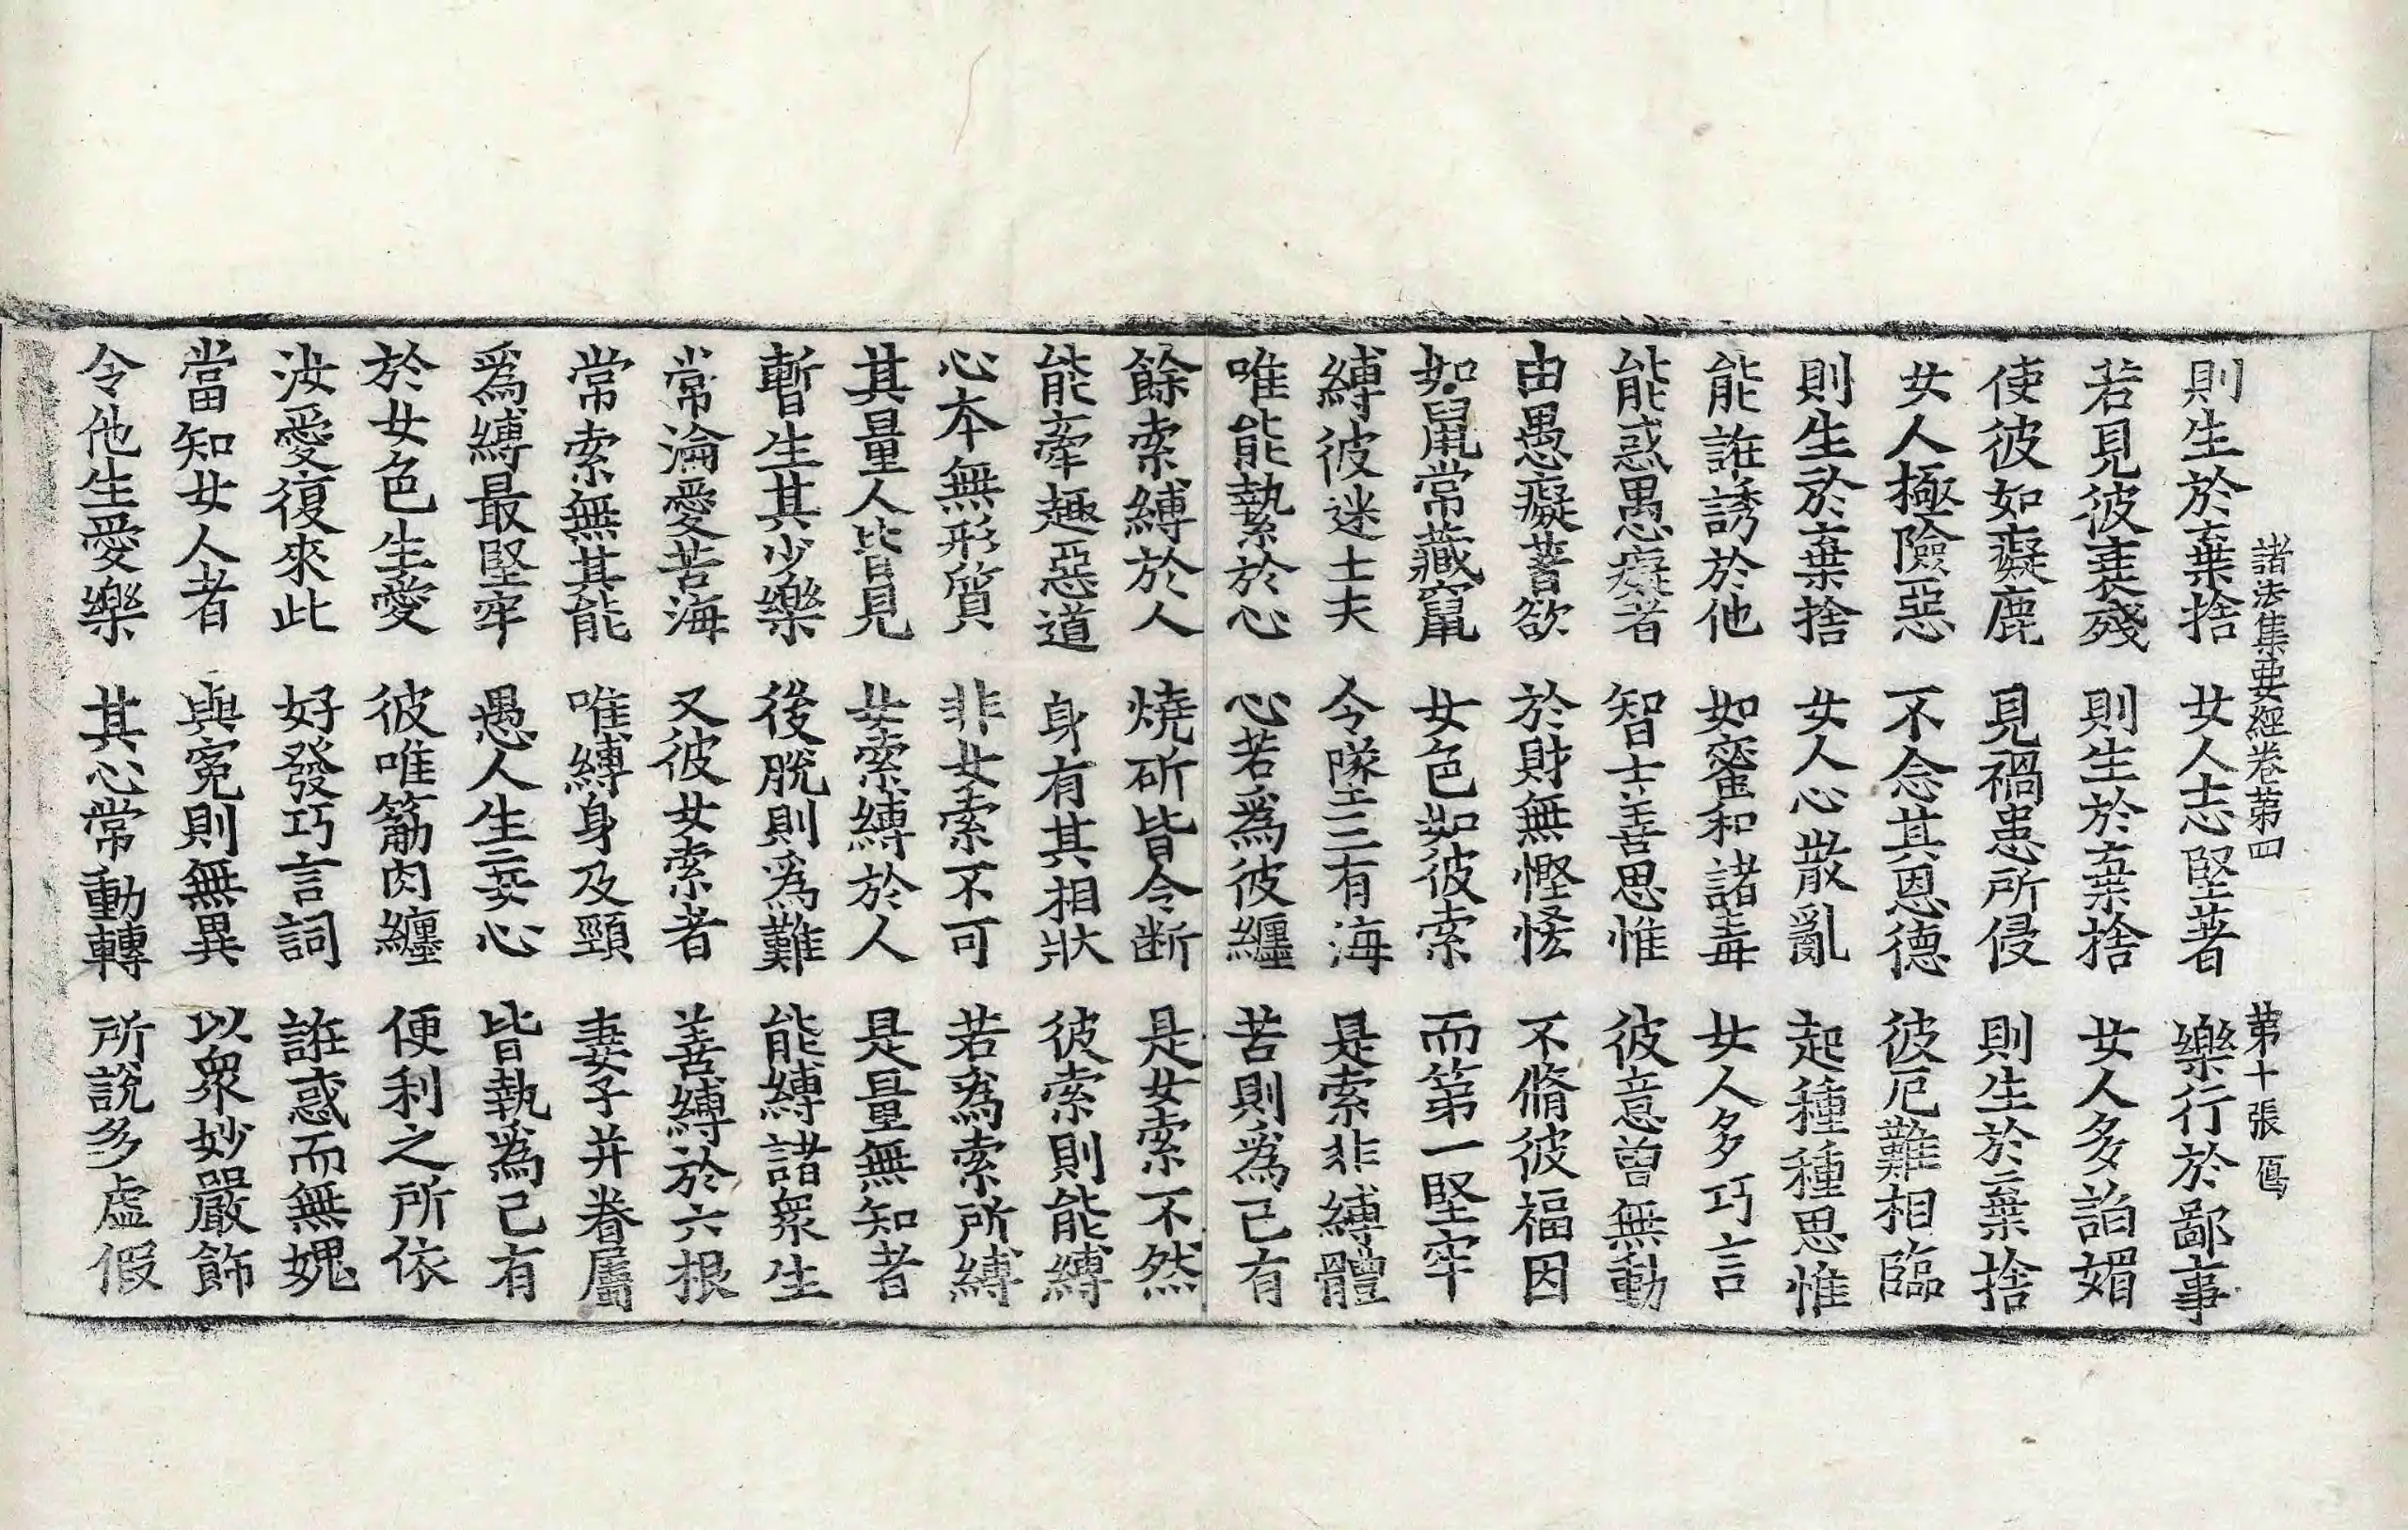 諸法集要經卷第四 第十張 鴈
則生於棄捨 女人志堅著 樂行於鄙事
若見彼衰殘 則生於棄捨 女人多諂媚
使彼如癡鹿 見禍患所侵 則生於棄捨
女人極險惡 不念其恩德 彼厄難相臨
則生於棄捨 女人心散亂 起種種思惟
能誑誘於他 如蜜和諸毒 女人多巧言
能惑愚癡者 智士善思惟 彼意曾無動
由愚癡蓄欲 於財無慳悋 不脩彼福因
如鼠常藏竄 女色如彼索 而第一堅牢
縛彼迷士夫 令墜三有海 是索非縛體
唯能縶於心 心若爲彼纏 苦則爲己有
餘索縛於人 燒斫皆令断 是女索不然
能牽趣惡道 身有其相狀 彼索則能縛
心本無形質 非女索不可 若爲索所縛
其量人皆見 女索縛於人 是量無知者
暫生其少樂 後脫則爲難 能縛諸衆生
常淪愛苦海 又彼女索者 善縛於六根
常索無其能 唯縛身及頸 妻子并眷屬
爲縛最堅牢 愚人生妄心 皆執爲己有
於女色生愛 彼唯筋肉纏 便利之所依
汝愛復來此 好發巧言詞 誑惑而無媿
當知女人者 與寃則無異 以衆妙嚴飾
令他生愛樂 其心常動轉 所說多虛假